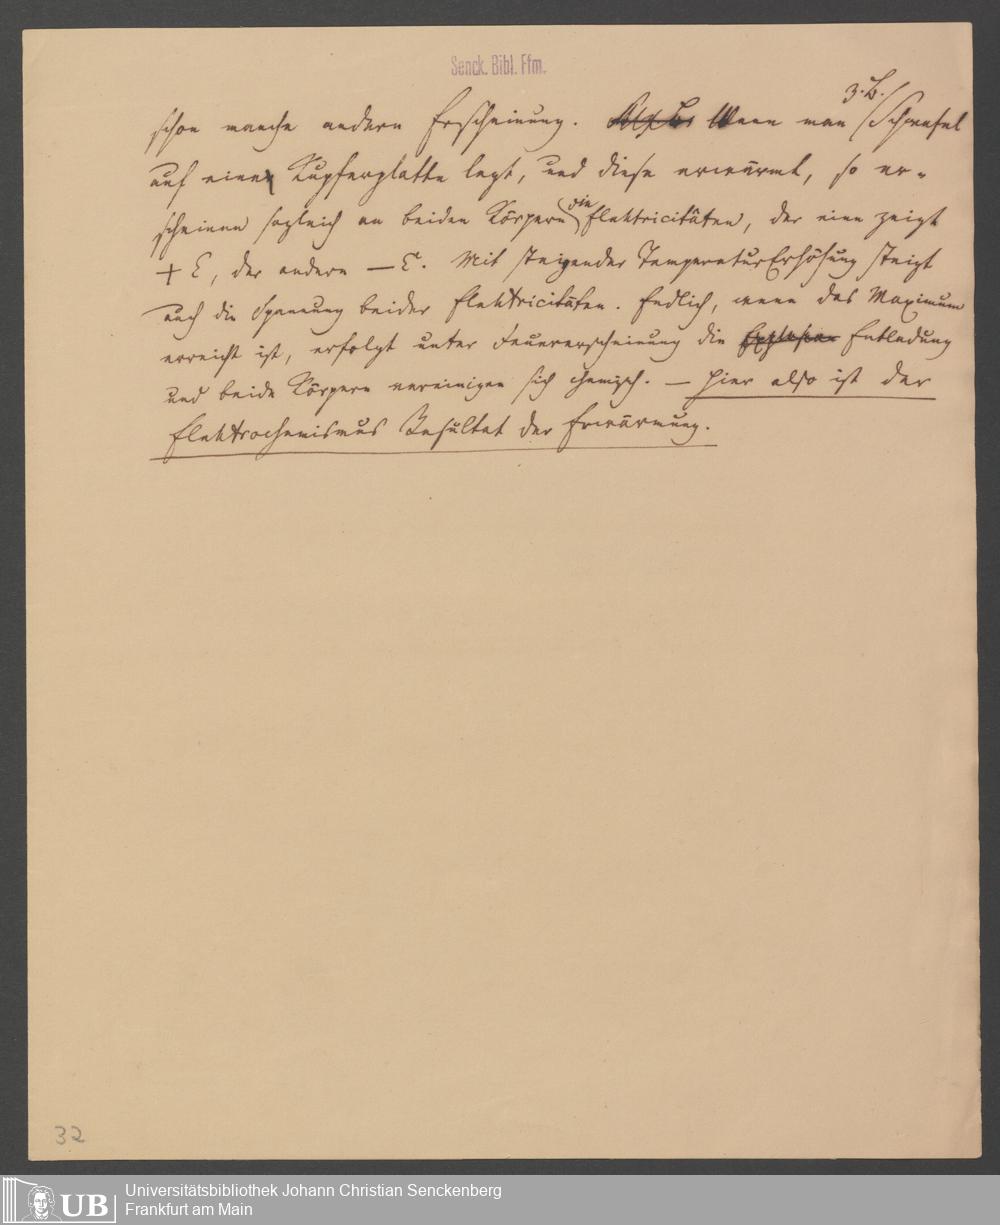 Senck. Bibl. Ffm.
z. B.
schon manche andern Erscheinung. Wenn man Schwefel
auf eine Kupferplatte legt, und diese erwärmt, so er-
scheinen sogleich an beiden Körpern die Elektricitäten, der eine zeigt
+ E, der andere — E. Mit steigender TemperaturErhöhung steigt
auch die Spannung beider Elektricitäten. Endlich, wenn das Maximum
erreicht ist, erfolgt unter Feuererscheinung die Explosion Entladung
und beide Körpern vereinigen sich chemisch. — Hier also ist der
Elektrochemismus Resultat der Erwärmung.
32
UB
Universitätsbibliothek Johann Christian Senckenberg
Frankfurt am Main